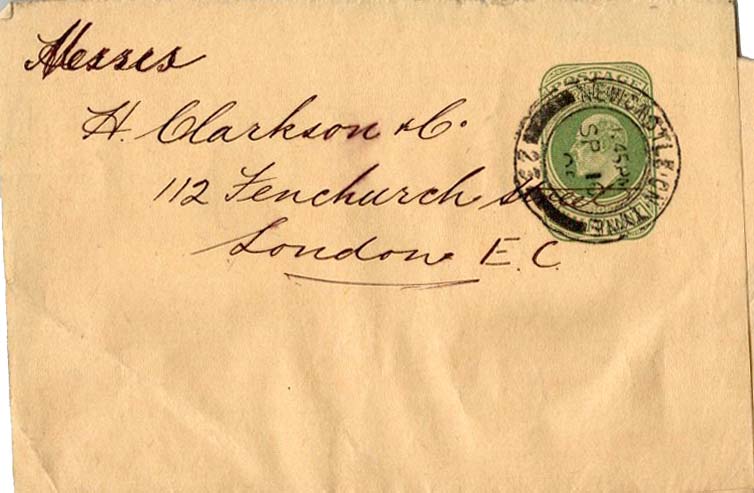 Messrs
H. Clarkson & Co.
112 Fenchurch Street
London E.C.
POSTAGE
NEWCASTLE-ON-TYNE
45 PM
SP 1